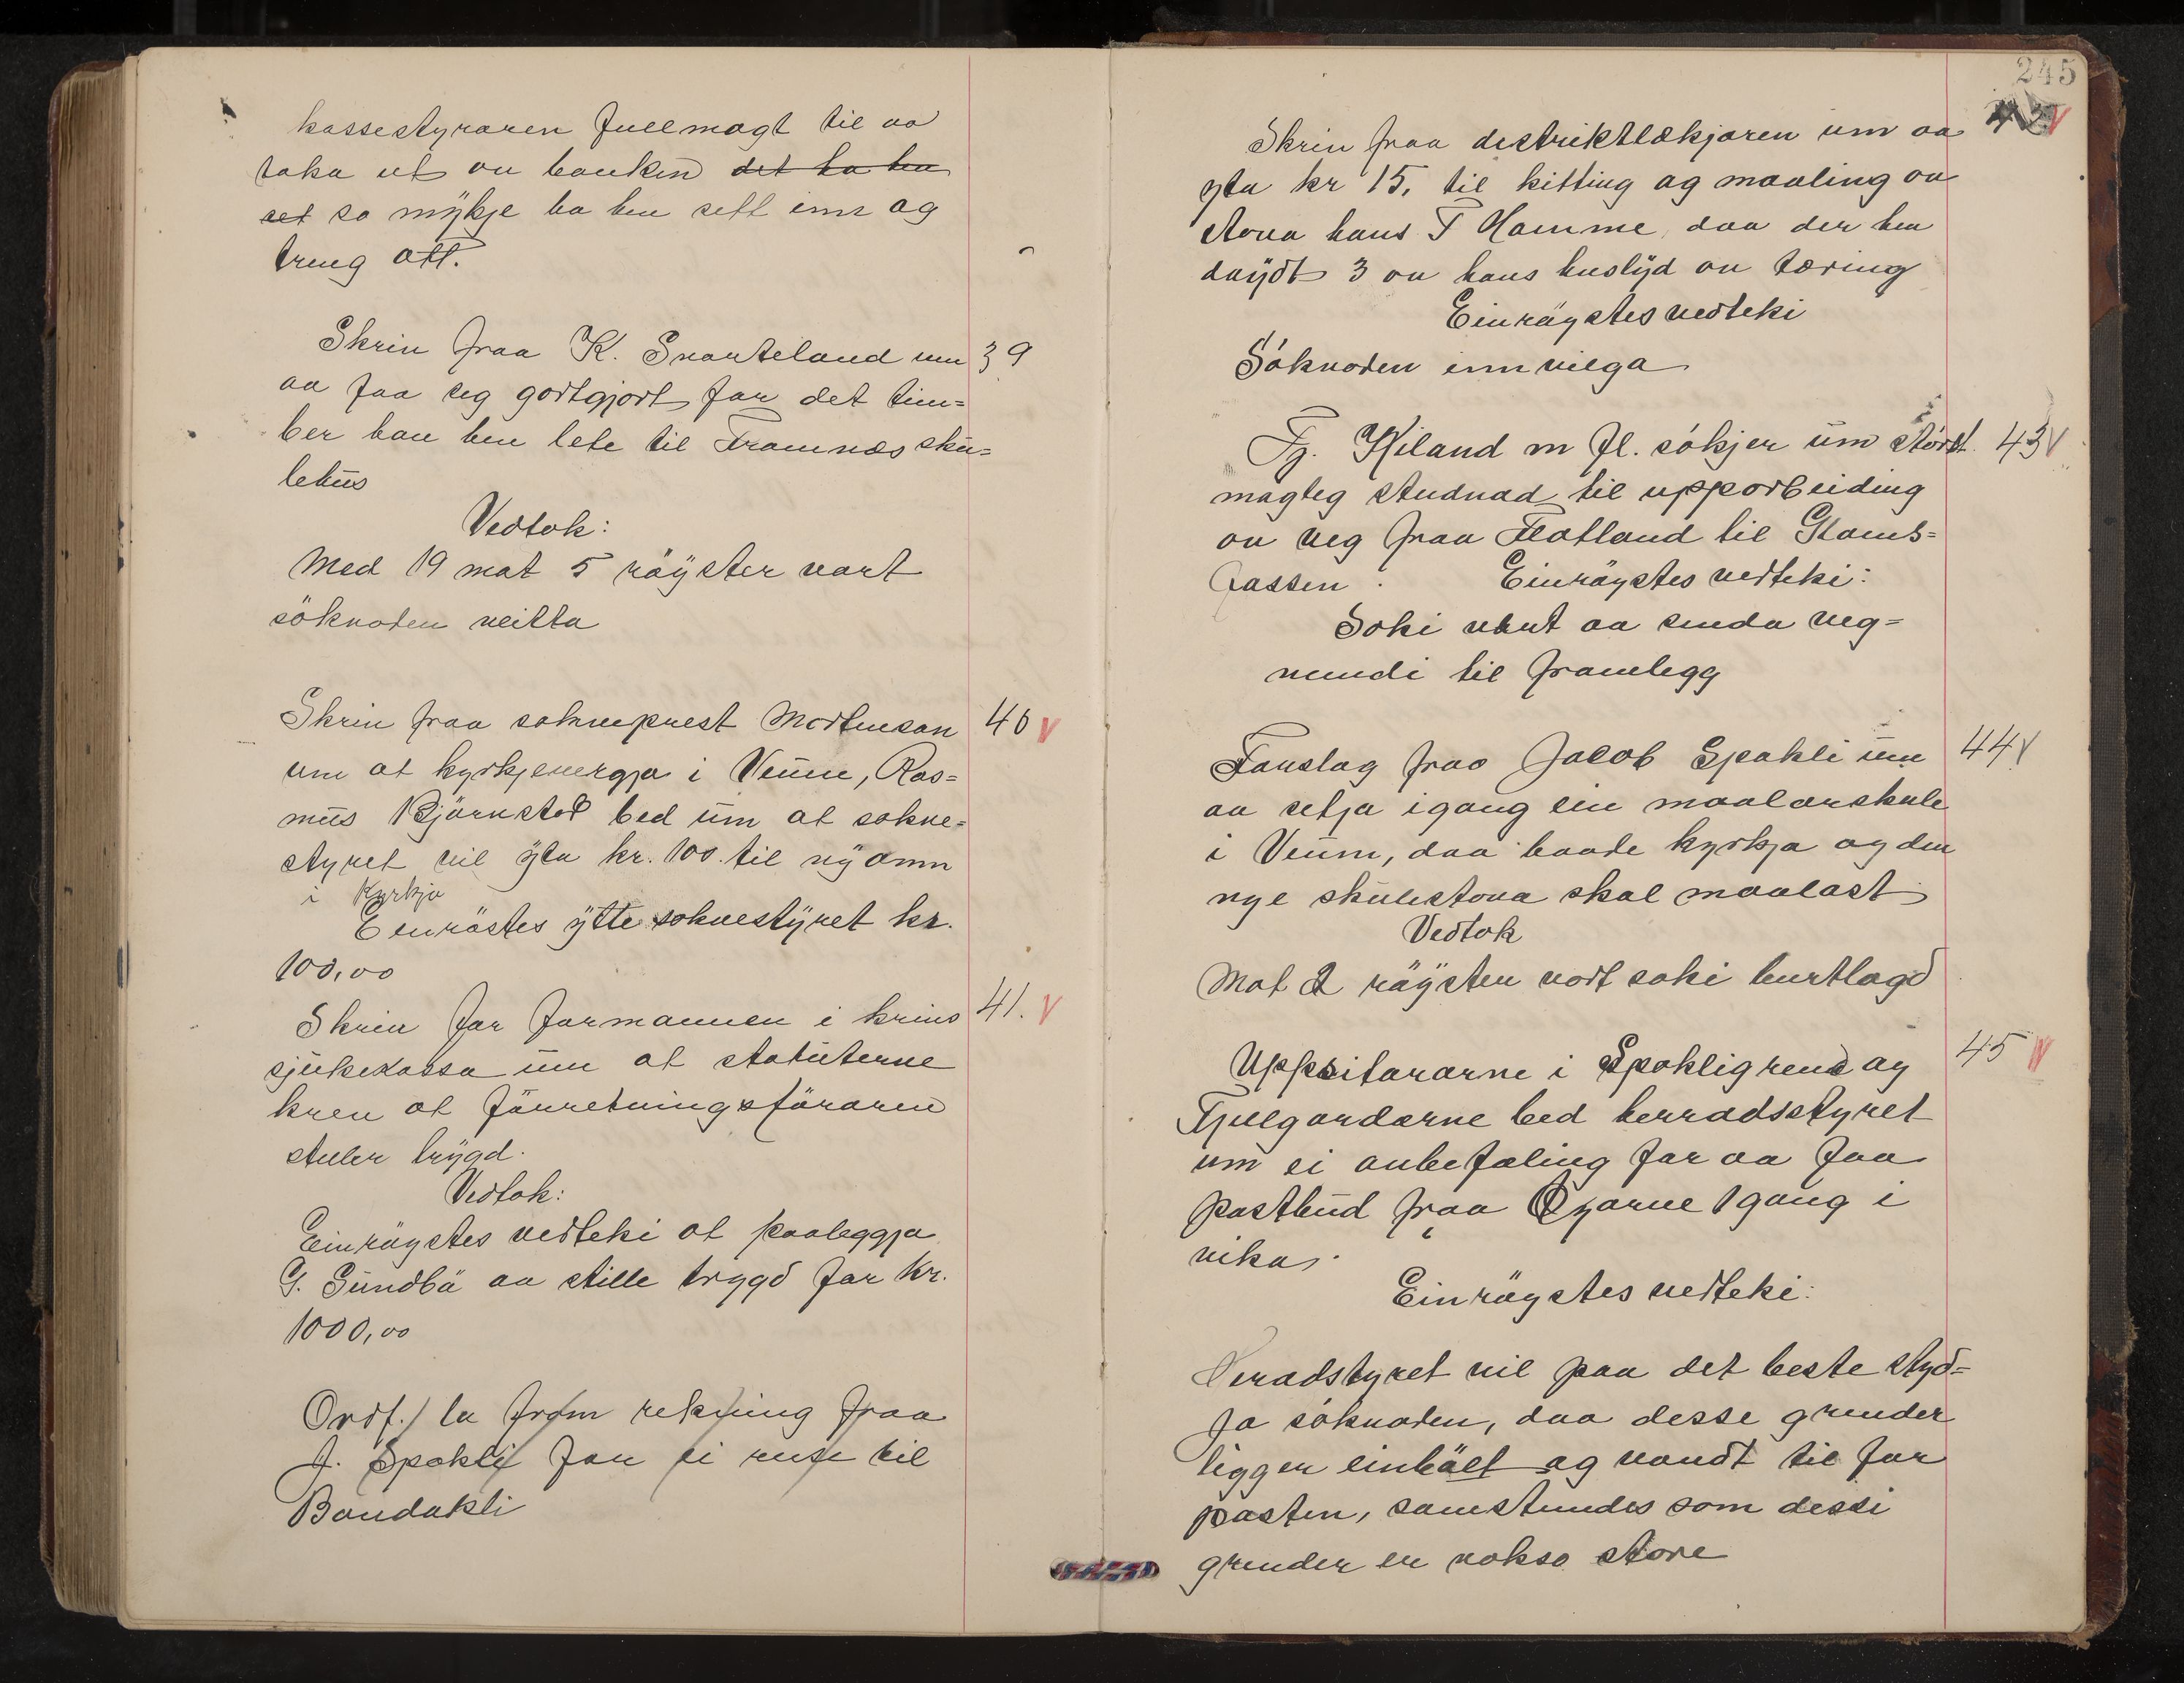 kassestyraren fullmagt til aa
taka ut av banken det ha ha
set so mykje ha hev sett inn og
treng att.
Skriv fraa K. Svarteland um 39
aa faa seg godtgjort for det tim=
ber han hev lete til Framnæs sku=
lehus
Vedtok:
Med 19 mot 5 röyster vart
söknaden veitta
Skriv fraa sokneprest Mortenson 40 V
um at kyrkjeverja i Veum, Ras=
mus Björnstad bed um at sokne=
styret vil yta kr. 100. til ny omn
i Kyrkja
Einröstes ytte soknestyret kr.
100,00
Skriv for formannen i krins 41. V
sjukekassa um at statuterne
krev at förretningsföraren
steller trygd.
Vedtok:
Einröystes vedteki at paaleggja
G. Sundbö aa stille trygd for kr.
1000,00
Ordf. la fram rekning fraa
J. Spokli for ei reise til
Bandakli
245
42 V
Skriv fraa distriktlækjaren um aa
yta kr 15, til kitting og maaling av
stova hans T Homme, daa der hev
döydt 3 av hans huslyd av tæring
Einröystes vedteki
Söknaden innvilga
Tj. Kiland m fl. sökjer um störst 43 V
magleg studnad til upparbeiding
av veg fraa Flatland til Glams=
fossen. Einröystes vedteki:
Saki vert aa senda veg=
nemdi til framlegg
Forslag fraa Jacob Spokli um 44 V
aa setja igang ein maalarskule
i Veum, daa baade kyrkja og den
nye skulestova skal maalast
Vedtok
Mot 2 röyster vort saki burtlagd
Uppsitararne i Spokligrend og 45 V
Fjellgardarne bed herradsstyret
um ei anbefaling for aa faa
postbud fraa Öyarne 1 gang i
vika.
Einröystes vedteki:
Heradstyret vil paa det beste styd=
ja söknaden, daa desse grender
ligger einbölt og vandt til for
posten, samstundes som dessi
grender er vokso store